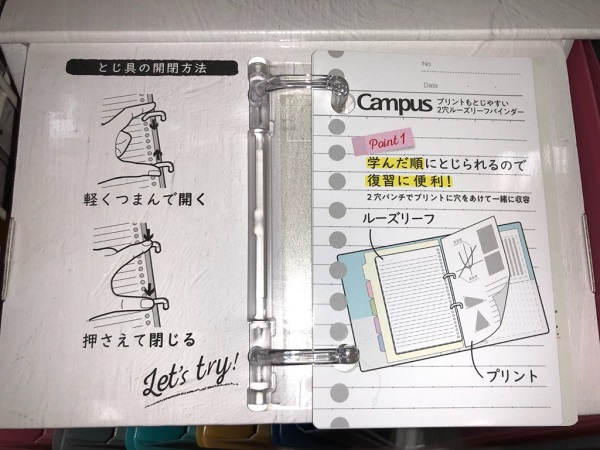 とじ具の開閉方法
軽くつまんで開く
押さえて閉じる
Let's try!
No.
Date
Campus プリントもとじやすい
2穴ルーズリーフバインダー
Point 1
学んだ順にとじられるので
復習に便利!
2穴パンチでプリントに穴をあけて一緒に収容
ルーズリーフ
プリント